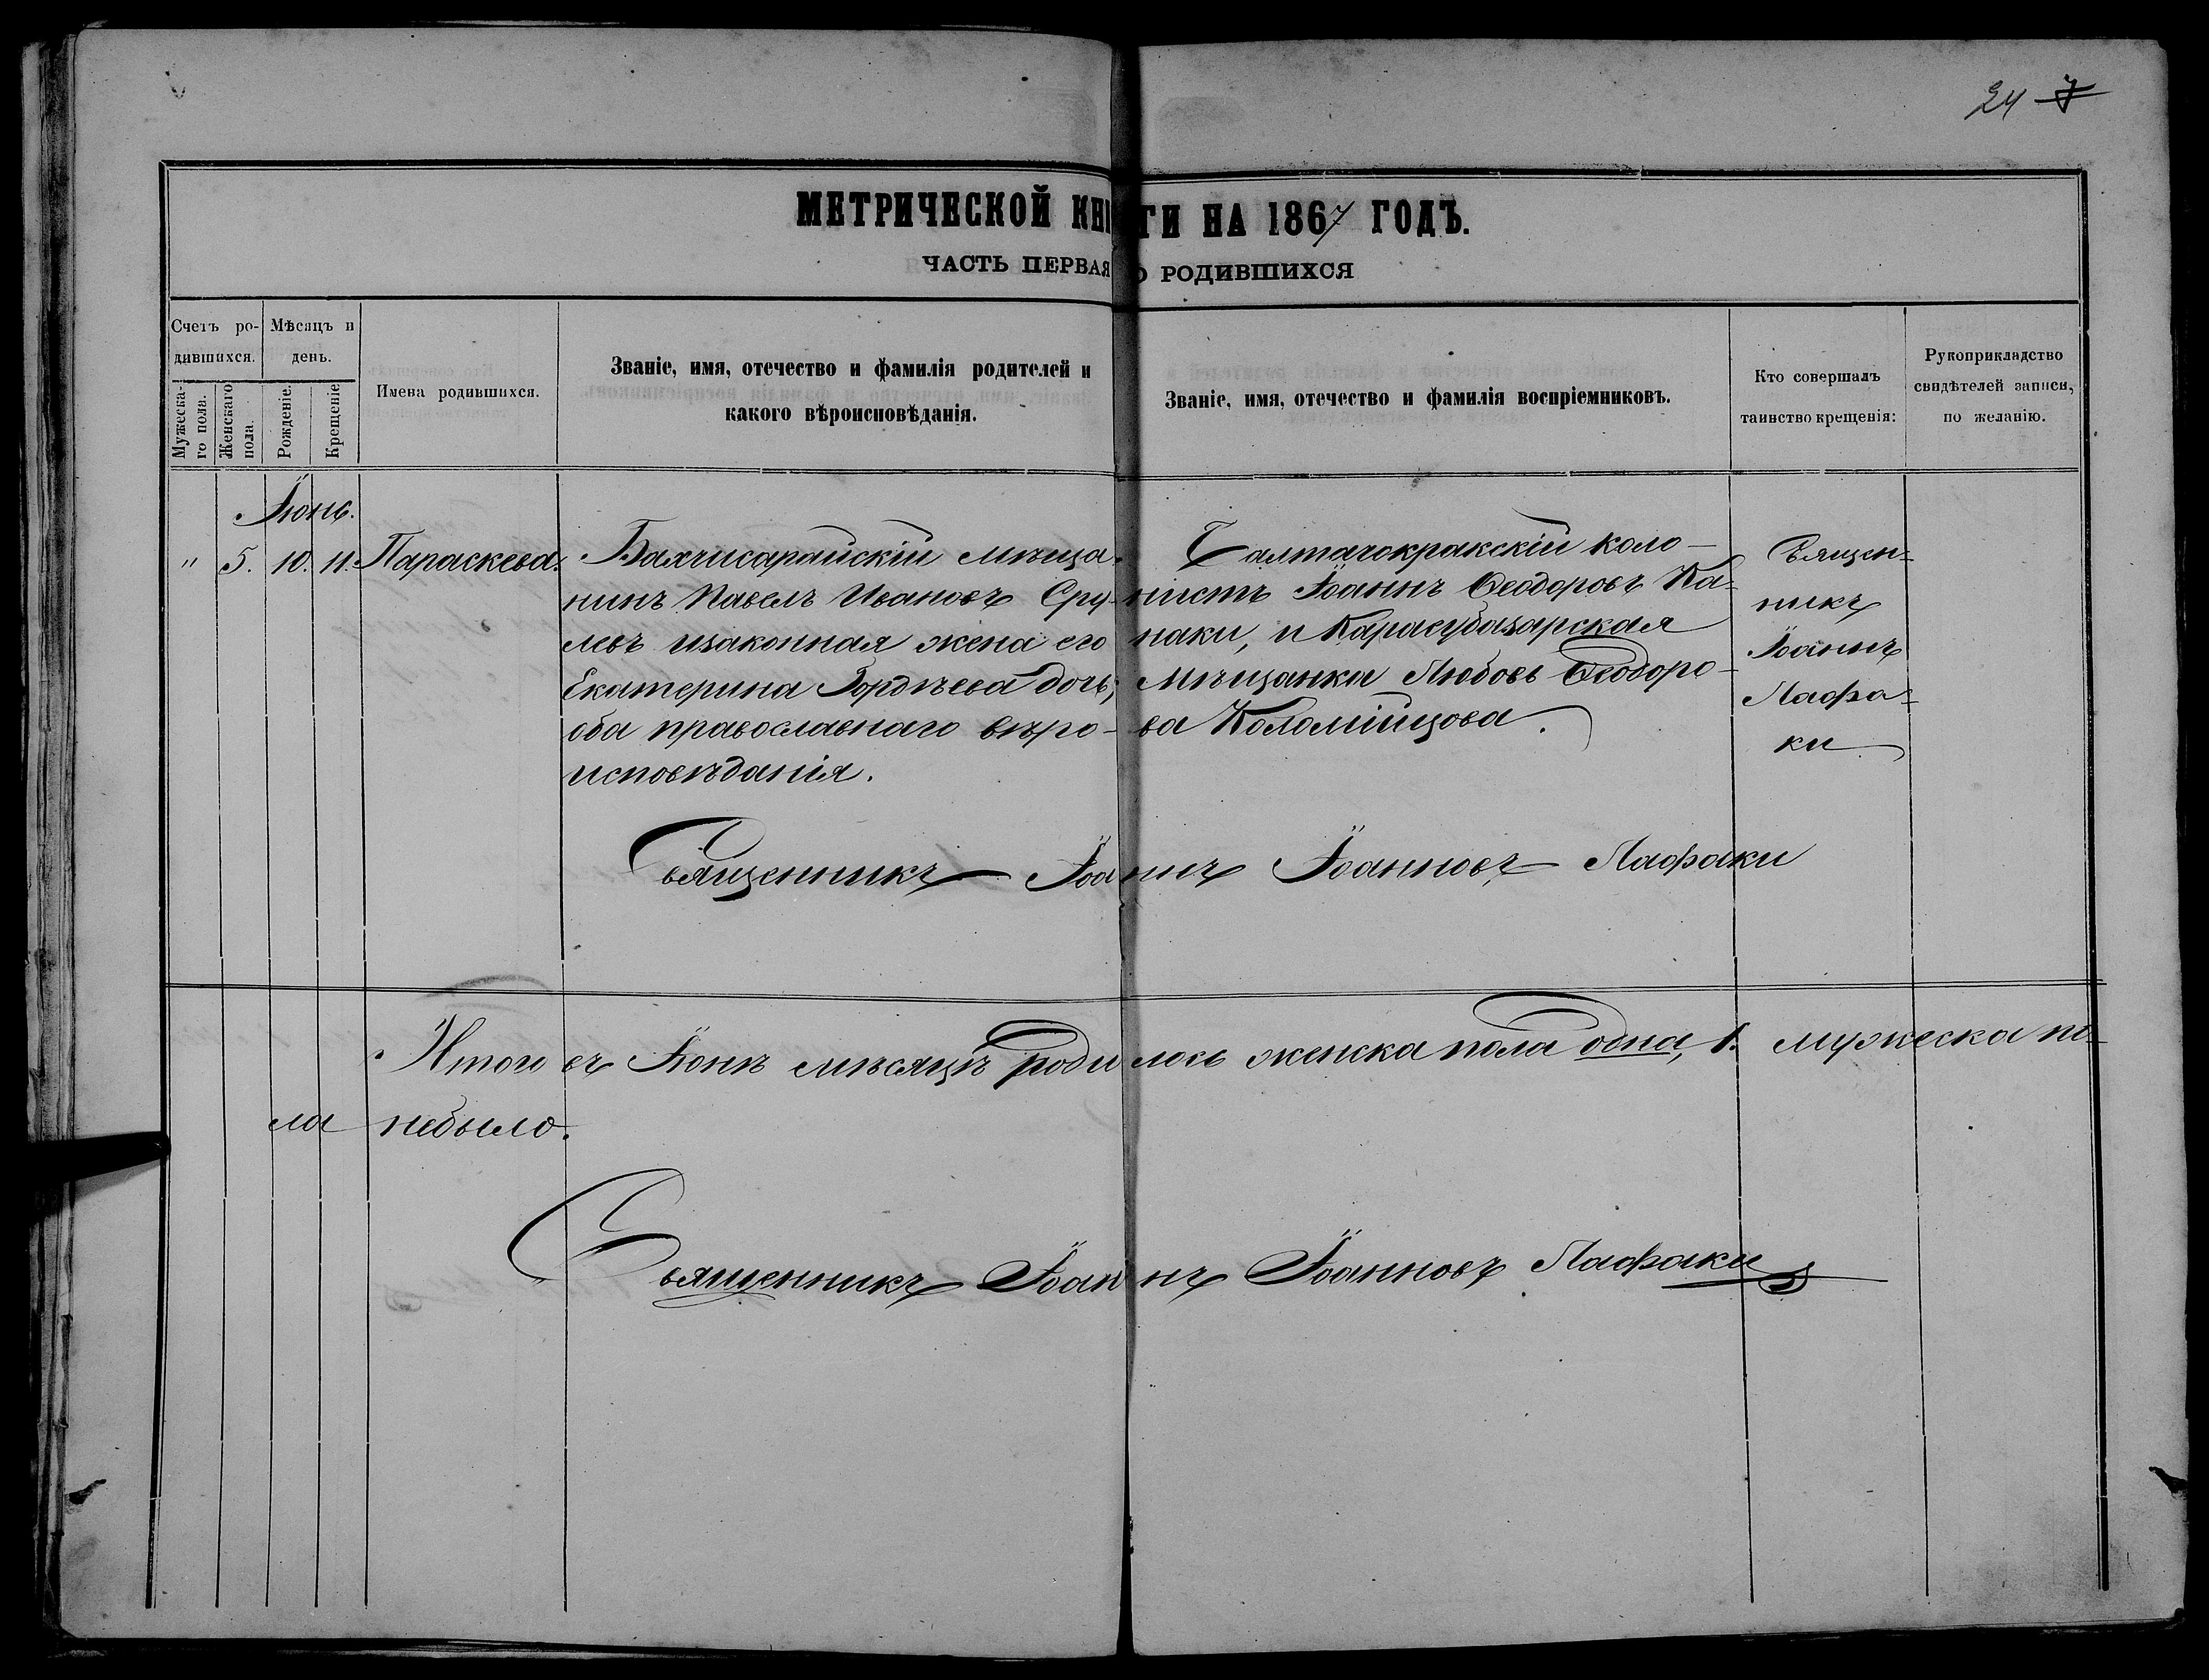 24 7
МЕТРИЧЕСКОЙ КНИГИ НА 1867 ГОДЪ.
ЧАСТЬ ПЕРВАЯ О РОДИВШИХСЯ
Счетъ ро-
дившихся.
Мужеска-
го пола.
Женскаго
пола.
Мѣсяцъ и
день.
Рожденіе.
Крещеніе
Имена родившихся.
Званіе, имя, отечество и фамилія родителей и
какого вѣроисповѣданія.
Званіе, имя, отечество и фамилія воспріемниковъ.
Кто совершалъ
таинство крещенія:
Рукоприкладство
свидѣтелей записи,
по желанію.
Іюнь.
" 5. 10. 11. Параскева.
Бахчисарайскій мѣща-
нинъ Павелъ Ивановъ
левъ изаконная жена его
Екатерина Гордѣева дочь;
оба православнаго вѣро-
исповѣданія.
Салтачокракскій коло-
нистъ Іоаннъ Ѳеодоровъ Ка-
наки, и Карасубазарская
Мѣщанка Любовь Ѳеодоро-
ва Коломійцова.
Священ-
никъ
Іоаннъ
Лафа-
ки
Священникъ Іоаннъ Іоанновъ Лафаки
Итого въ Іюнѣ мѣсяцѣ родилось женска пола одна, 1. мужеска по-
ла небыло.
Священникъ Іоаннъ Іоанновъ Лафаки